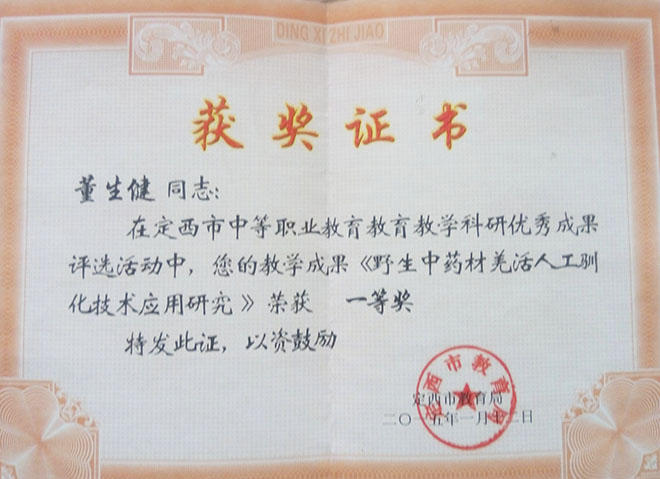 DING XI ZHI JIAO
获奖证书
董生健 同志：
在定西市中等职业教育教育教学科研优秀成果
评选活动中，您的教学成果《野生中药材羌活人工驯
化技术应用研究》荣获 一等奖
特发此证，以资鼓励
定西市教育局
定西市教育局
二〇一五年一月十二日